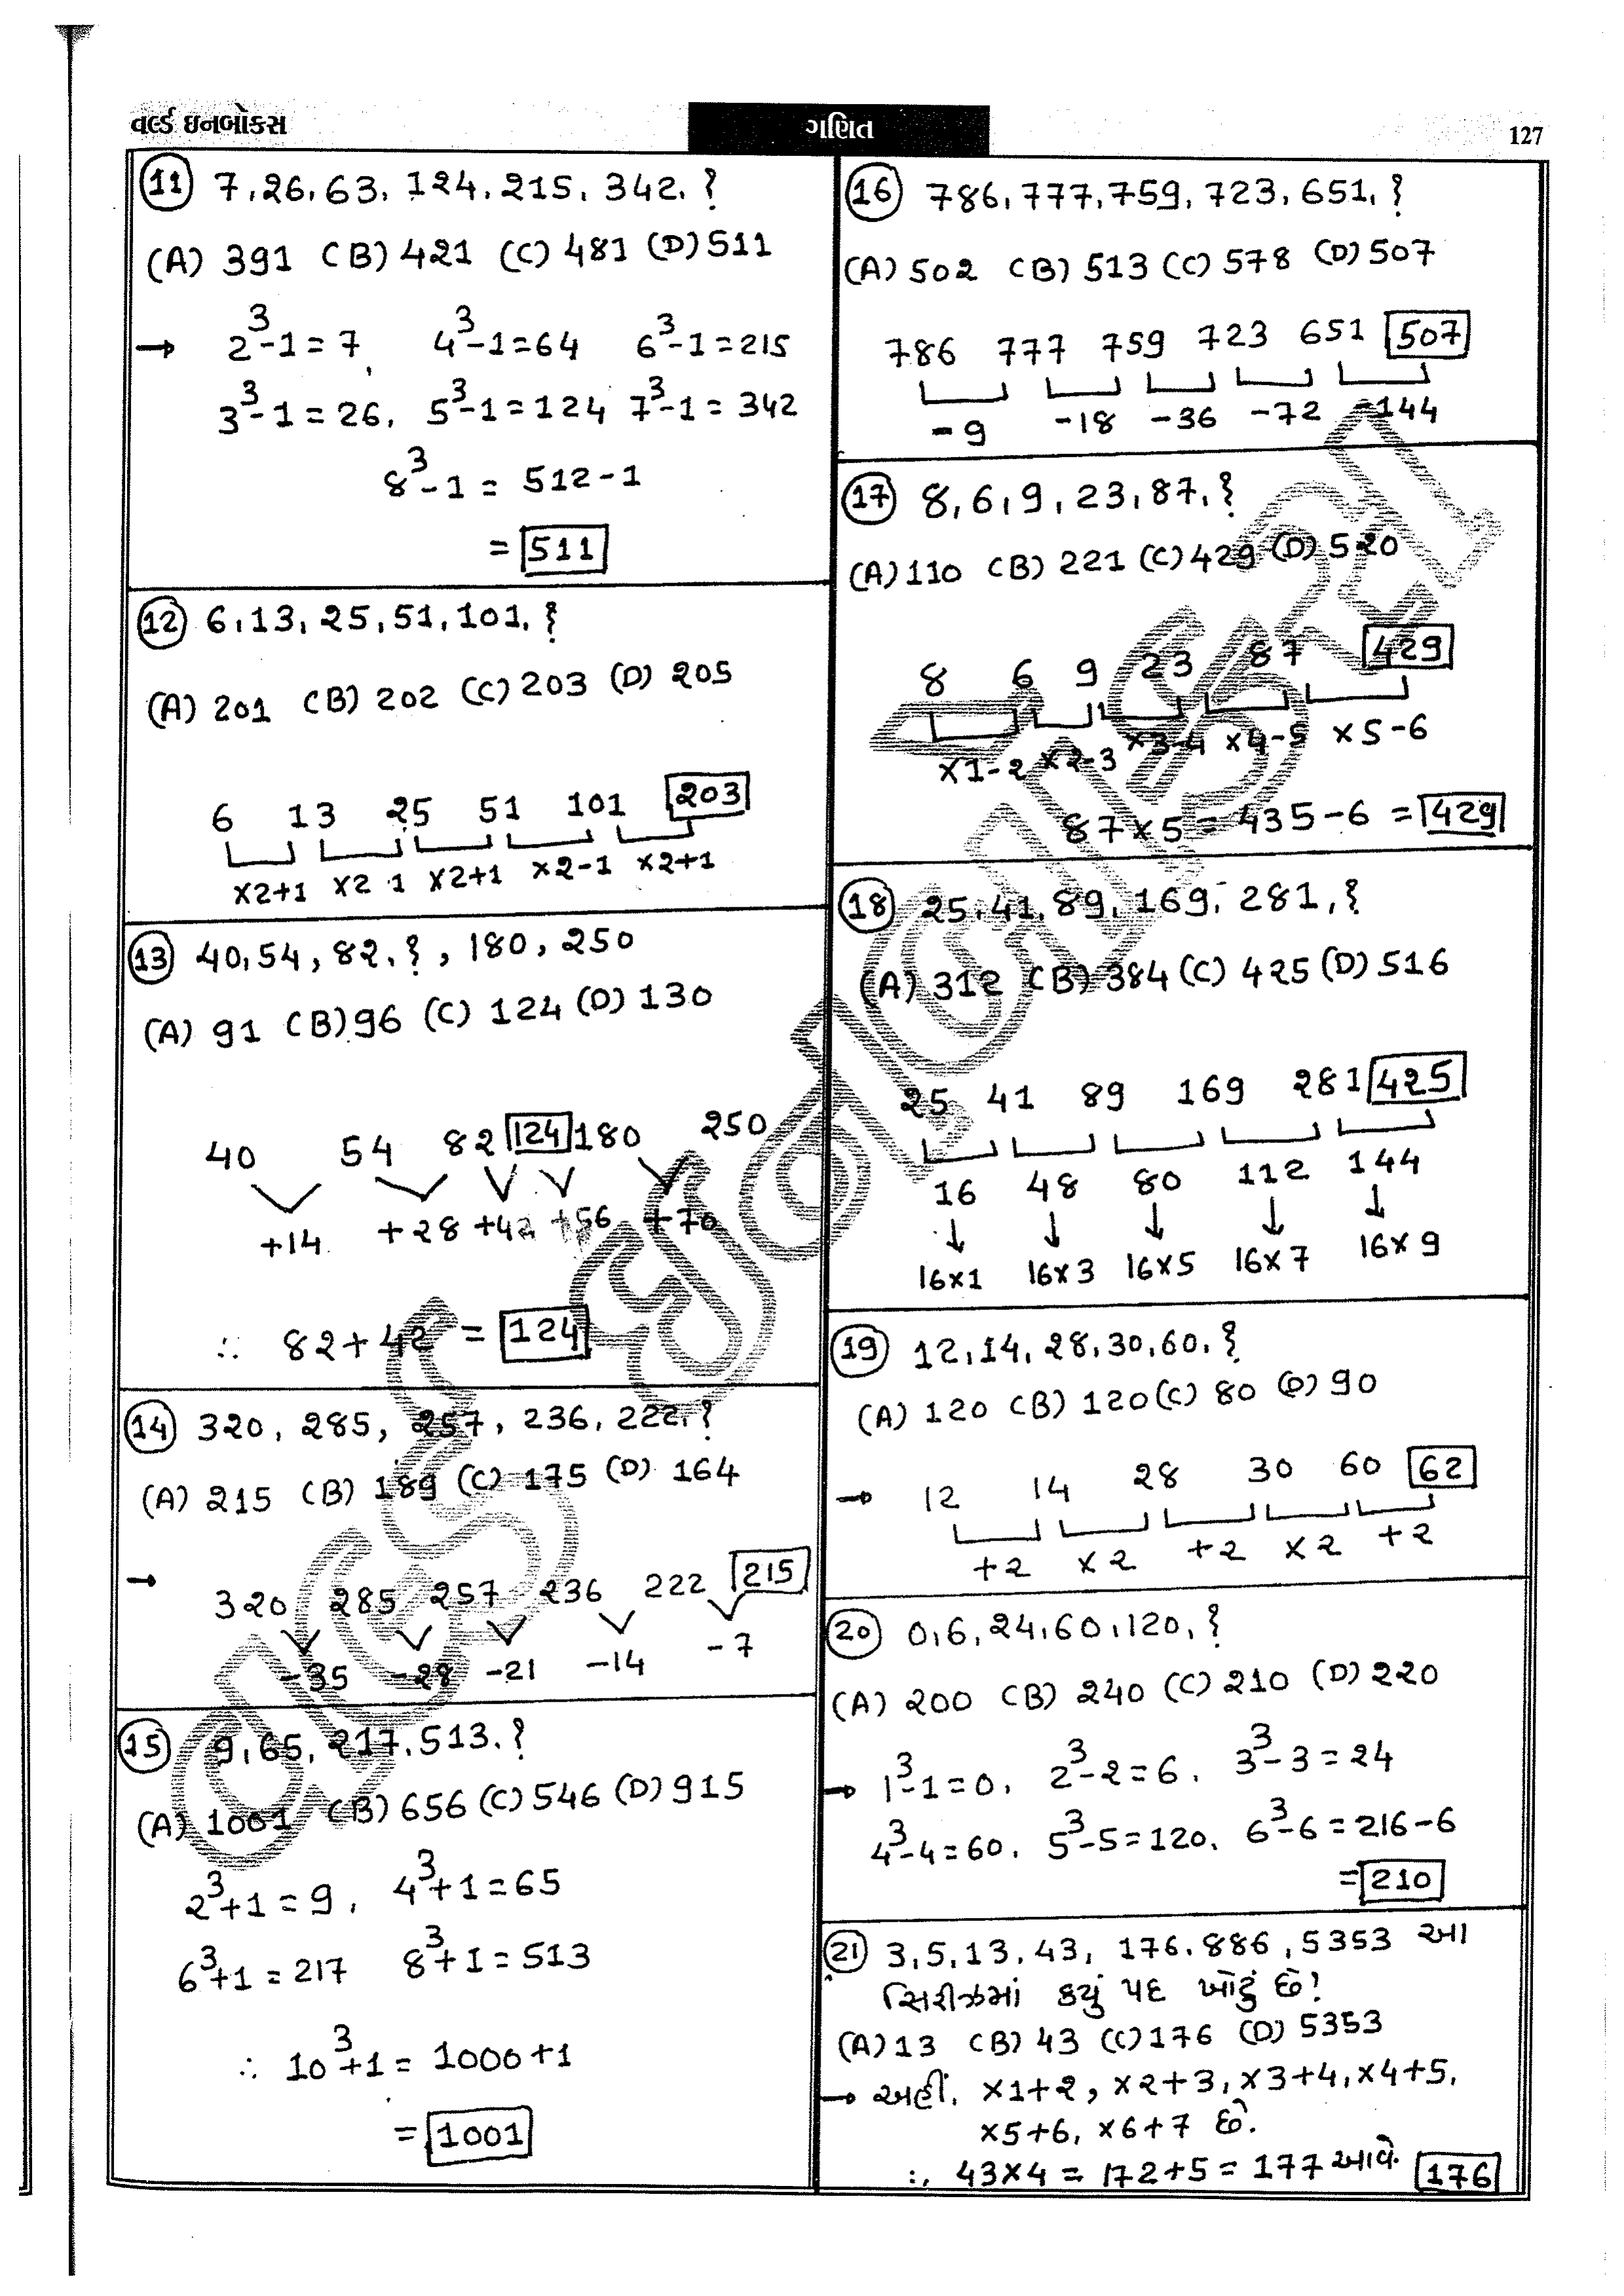 વર્લ્ડ ઇનબોક્સ
ગણિત
127
11 7, 26, 63, 124, 215, 342, ?
(A) 391 (B) 421 (C) 481 (D) 511
→ 2³-1=7, 4³-1=64 6³-1=215
3³-1=26, 5³-1=124 7³-1=342
8³-1 = 512-1
= 511
12 6, 13, 25, 51, 101, ?
(A) 201 (B) 202 (C) 203 (D) 205
6 13 25 51 101 203
×2+1 ×2 1 ×2+1 ×2-1 ×2+1
13 40, 54, 82, ?, 180, 250
(A) 91 (B) 96 (C) 124 (D) 130
40 54 82 124 180 250
+14 +28 +42 +56 +70
∴ 82+42 = 124
14 320, 285, 257, 236, 222, ?
(A) 215 (B) 189 (C) 175 (D) 164
→ 320 285 257 236 222 215
-35 -28 -21 -14 -7
15 9, 65, 217, 513, ?
(A) 1001 (B) 656 (C) 546 (D) 915
2³+1=9, 4³+1=65
6³+1=217 8³+1=513
∴ 10³+1= 1000+1
= 1001
16 786, 777, 759, 723, 651, ?
(A) 502 (B) 513 (C) 578 (D) 507
786 777 759 723 651 507
-9 -18 -36 -72 -144
17 8, 6, 9, 23, 87, ?
(A) 110 (B) 221 (C) 429 (D) 520
8 6 9 23 87 429
×1-2 ×2-3 ×3-4 ×4-5 ×5-6
87×5 = 435-6 = 429
18 25, 41, 89, 169, 281, ?
(A) 312 (B) 384 (C) 425 (D) 516
25 41 89 169 281 425
16 48 80 112 144
↓ ↓ ↓ ↓ ↓
16×1 16×3 16×5 16×7 16×9
19 12, 14, 28, 30, 60, ?
(A) 120 (B) 120 (C) 80 (D) 90
→ 12 14 28 30 60 62
+2 ×2 +2 ×2 +2
20 0, 6, 24, 60, 120, ?
(A) 200 (B) 240 (C) 210 (D) 220
→ 1³-1=0, 2³-2=6, 3³-3=24
4³-4=60, 5³-5=120, 6³-6=216-6
= 210
21 3, 5, 13, 43, 176, 886, 5353 આ
સિરીઝમાં કયું પદ ખોટું છે?
(A) 13 (B) 43 (C) 176 (D) 5353
→ અહીં, ×1+2, ×2+3, ×3+4, ×4+5,
×5+6, ×6+7 છે.
∴ 43×4 = 172+5 = 177 આવે. 176